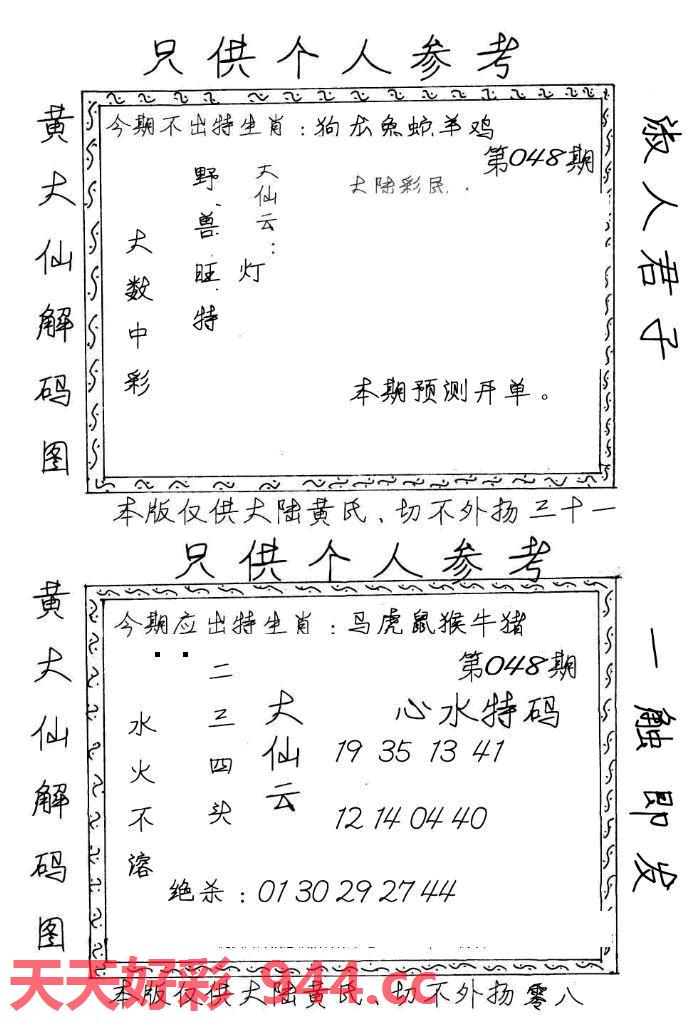 只供个人参考
黄大仙解码图
今期不出特生肖：狗龙兔蛇羊鸡
第048期
大陆彩民.
大仙云：
灯
野兽旺特
大数中彩
本期预测开单。
淑人君子
本版仅供大陆黄氏、切不外扬三十一
只供个人参考
黄大仙解码图
今期应出特生肖：马虎鼠猴牛猪
第048期
心水特码
大仙云
二三四头
水火不溶
19 35 13 41
12 14 04 40
绝杀：01 30 29 27 44
一触即发
天天好彩 944.cc
本版仅供大陆黄氏、切不外扬零八